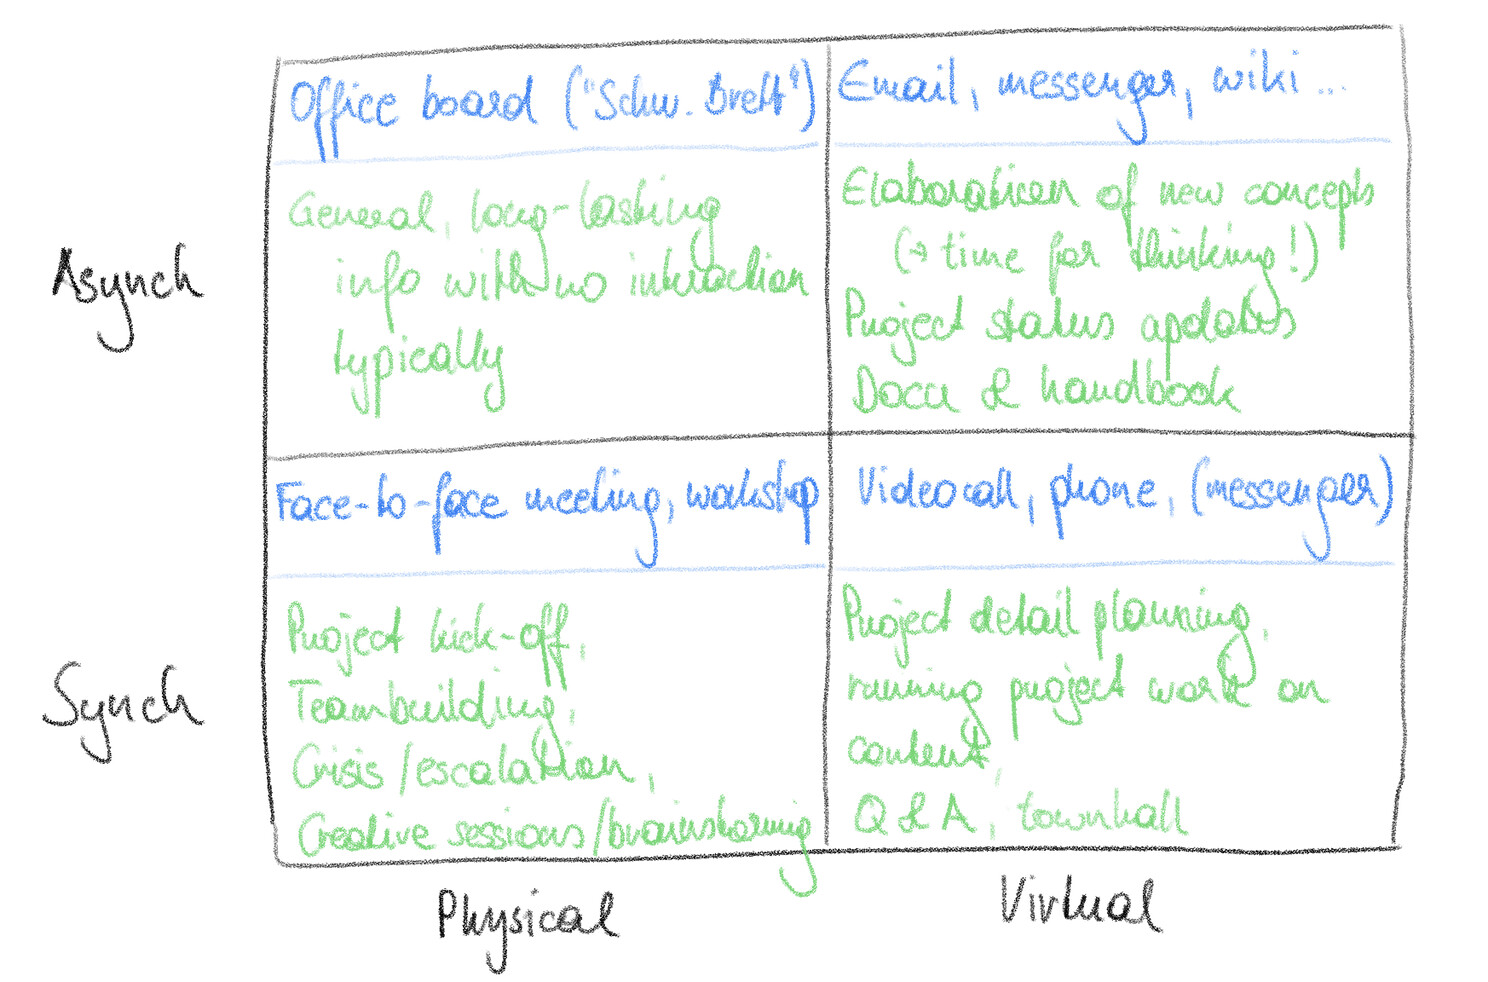 Office board ("Schw. Brett")
General, long-lasting
info with no interaction
typically
Email, messenger, wiki ...
Elaboration of new concepts
(→ time for thinking!)
Project status updates
Docu & handbook
Asynch
Face-to-face meeting, workshop
Project kick-off,
Teambuilding,
Crisis/escalation,
Creative sessions/brainstorming
Videocall, phone, (messenger)
Project detail planning,
running project work on
content,
Q & A, townhall
Synch
Physical
Virtual